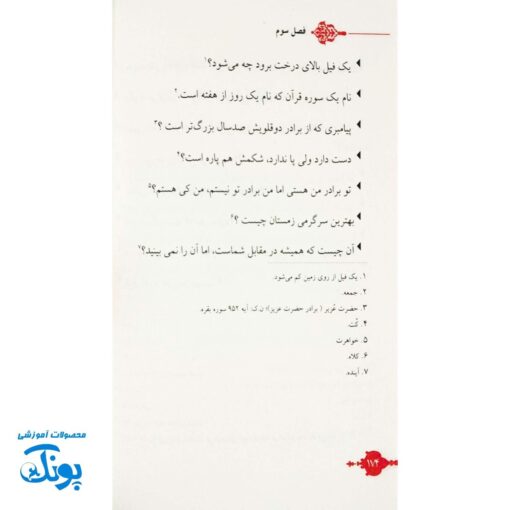 فصل سوم
یک فیل بالای درخت برود چه می‌شود؟۱
نام یک سوره قرآن که نام یک روز از هفته است.۲
پیامبری که از برادر دوقلویش صدسال بزرگ‌تر است ؟۳
دست دارد ولی پا ندارد، شکمش هم پاره است؟۴
تو برادر من هستی اما من برادر تو نیستم، من کی هستم؟۵
بهترین سرگرمی زمستان چیست ؟۶
آن چیست که همیشه در مقابل شماست، اما آن را نمی بینید؟۷
۱. یک فیل از روی زمین کم می‌شود.
۲. جمعه.
۳. حضرت عُزیر ( برادر حضرت عزیز)؛ ن.ک: آیه ۹۵۲ سوره بقره.
۴. کُت.
۵. خواهرت
۶. کلاه.
۷. آینده.
محصولات آموزشی
پونک
۱۷۴